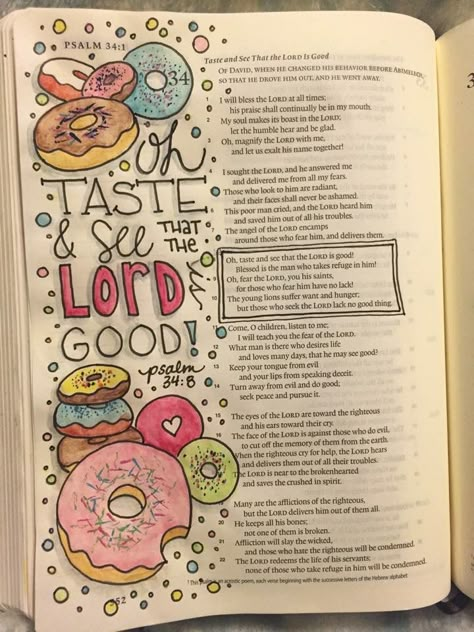 PSALM 34:1
34
Oh
TASTE
& See THAT THE
LORD is
GOOD!
psalm
34:8
Taste and See That the LORD Is Good
OF DAVID, WHEN HE CHANGED HIS BEHAVIOR BEFORE ABIMELECH,
SO THAT HE DROVE HIM OUT, AND HE WENT AWAY.
I will bless the LORD at all times;
his praise shall continually be in my mouth.
2 My soul makes its boast in the LORD;
let the humble hear and be glad.
3 Oh, magnify the LORD with me,
and let us exalt his name together!
4 I sought the LORD, and he answered me
and delivered me from all my fears.
Those who look to him are radiant,
and their faces shall never be ashamed.
This poor man cried, and the LORD heard him
and saved him out of all his troubles.
7 The angel of the LORD encamps
around those who fear him, and delivers them.
Oh, taste and see that the LORD is good!
Blessed is the man who takes refuge in him!
9 Oh, fear the LORD, you his saints,
for those who fear him have no lack!
10 The young lions suffer want and hunger;
but those who seek the LORD lack no good thing.
11 Come, O children, listen to me;
I will teach you the fear of the LORD.
12 What man is there who desires life
and loves many days, that he may see good?
13 Keep your tongue from evil
and your lips from speaking deceit.
14 Turn away from evil and do good;
seek peace and pursue it.
15 The eyes of the LORD are toward the righteous
and his ears toward their cry.
16 The face of the LORD is against those who do evil,
to cut off the memory of them from the earth.
When the righteous cry for help, the LORD hears
and delivers them out of all their troubles.
The LORD is near to the brokenhearted
and saves the crushed in spirit.
Many are the afflictions of the righteous,
but the LORD delivers him out of them all.
20 He keeps all his bones;
not one of them is broken.
21 Affliction will slay the wicked,
and those who hate the righteous will be condemned.
22 The LORD redeems the life of his servants;
none of those who take refuge in him will be condemned.
1 This psalm is an acrostic poem, each verse beginning with the successive letters of the Hebrew alphabet
552